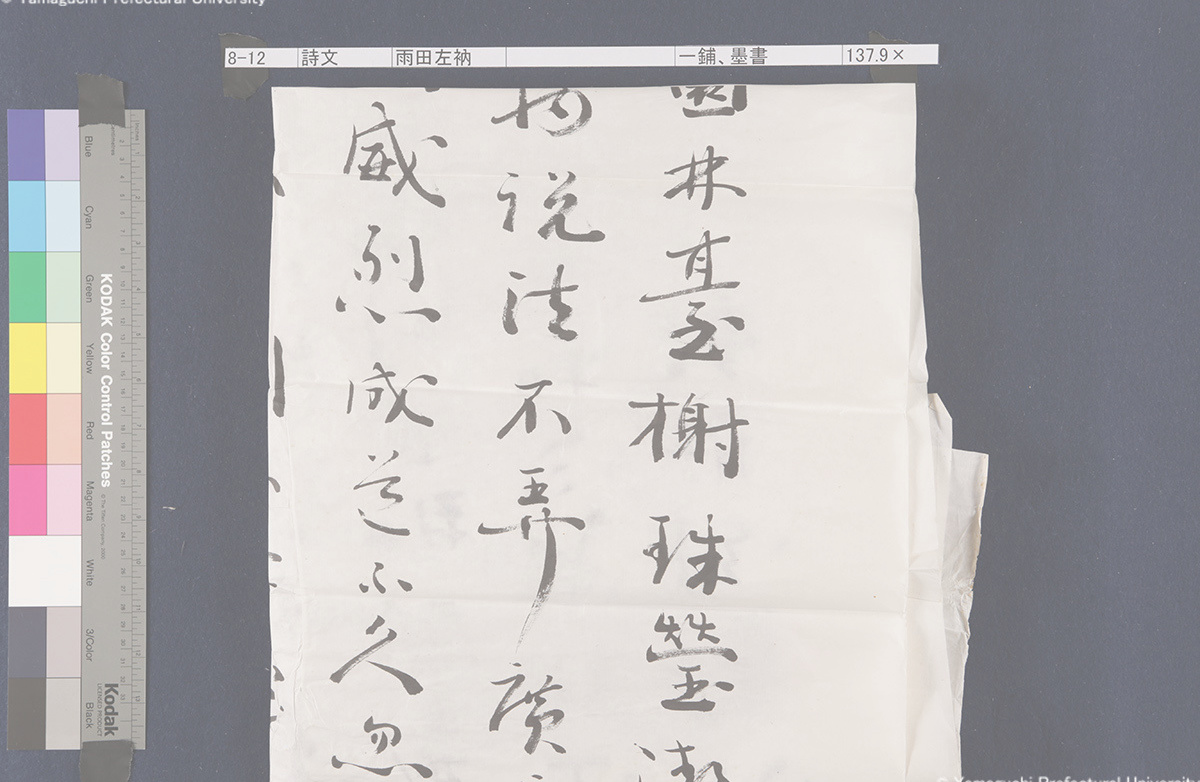 © Yamaguchi Prefectural University
8-12 詩文 雨田左衲 一鋪、墨書 137.9×
園林臺榭珠瑩
物説法不弄廣
威烈成道不久忽
KODAK Color Control Patches
© The Tiffen Company, 2000
Kodak
LICENSED PRODUCT
Blue
Cyan
Green
Yellow
Red
Magenta
White
3/Color
Black
© Yamaguchi Prefectural University